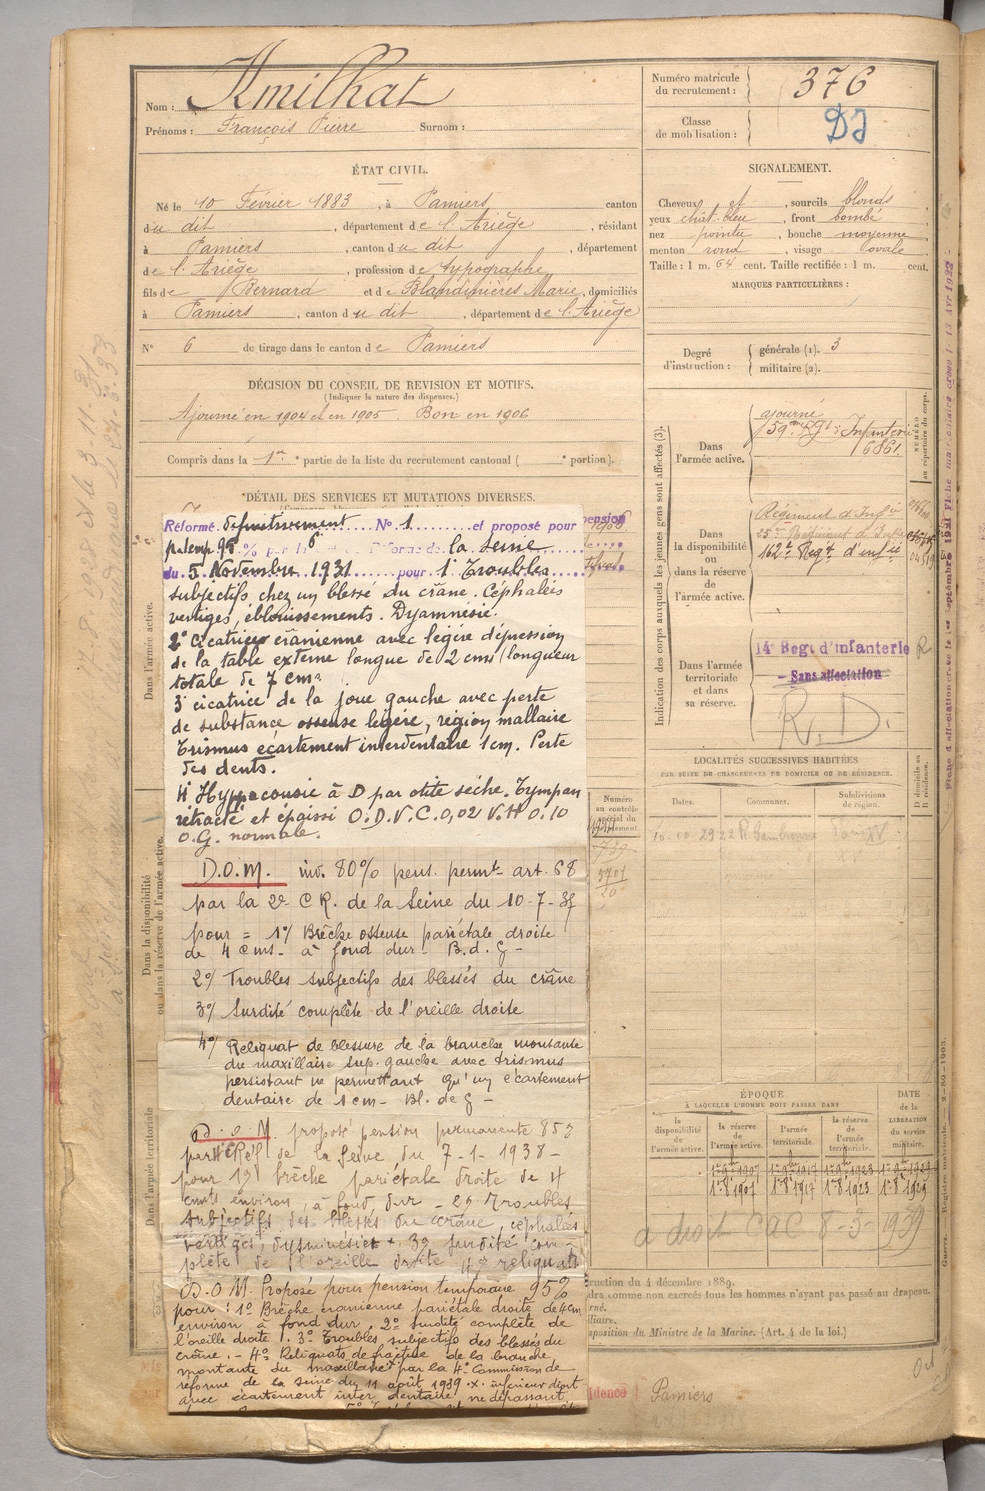 Nom : Amilhat
Prénoms : François Pierre Surnom :
Numéro matricule du recrutement : 376
Classe de mobilisation :
ÉTAT CIVIL.
Né le 10 Février 1883, à Pamiers, canton
du dit, département de l'Ariège, résidant
à Pamiers, canton du dit, département
de l'Ariège, profession de typographe
fils de Bernard et de Blandinières Marie, domiciliés
à Pamiers, canton du dit, département de l'Ariège
N° 6 de tirage dans le canton de Pamiers
SIGNALEMENT.
Cheveux et, sourcils blonds
yeux chât. bleu, front bombé
nez pointu, bouche moyenne
menton rond, visage ovale
Taille : 1 m. 64 cent. Taille rectifiée : 1 m. cent.
MARQUES PARTICULIÈRES :
Degré d'instruction : générale (1). 3
militaire (2).
DÉCISION DU CONSEIL DE REVISION ET MOTIFS.
(Indiquer la nature des dispenses.)
Ajourné en 1904 et en 1905. Bon en 1906
Compris dans la 1re partie de la liste du recrutement cantonal ( e portion).
DÉTAIL DES SERVICES ET MUTATIONS DIVERSES.
Réformé définitivement N° 1 et proposé pour pension
p. temp 95 % par la Réforme de la Seine
du 5 Novembre 1931 pour 1° Troubles
subjectifs chez un blessé du crâne. Céphalées
vertiges, éblouissements. Dysmnésie.
2° cicatrice crânienne avec légère dépression
de la table externe longue de 2 cms (longueur
totale de 7 cms
3° cicatrice de la joue gauche avec perte
de substance osseuse légère, région mallaire
Trismus écartement interdentaire 1cm. Perte
des dents.
4° Hypoacousie à D par otite sèche. Tympan
rétracté et épaissi O.D.V.C. 0,02 V.H 0.10
O.G. normale.
D.O.M. inv. 80% pens. permte art. 68
par la 2e C.R. de la Seine du 10-7-35
pour = 1°/ Brèche osseuse pariétale droite
de 4 cms. à fond dur. B.d.G -
2°/ Troubles subjectifs des blessés du crâne
3°/ Surdité complète de l'oreille droite
4°/ Reliquat de blessure de la branche montante
du maxillaire sup. gauche avec trismus
persistant ne permettant qu'un écartement
dentaire de 1 cm - Bl. de G -
D.O.M. proposé pension permanente 85%
de la Seine du 7-1-1938-
pour 1°/ brèche pariétale droite de 4
cms environ, à fond dur - 2°/ Troubles
subjectifs des blessés du crâne, céphalées
vertiges, dysmnésie + 3°/ surdité com-
plète de l'oreille droite 4°/ reliquats
D.O.M. Proposé pour pension temporaire 95%
pour : 1° Brèche cranienne pariétale droite de 4cm
environ à fond dur. 2° surdité complète de
l'oreille droite. 3° Troubles subjectifs des blessés du
crâne. - 4° Reliquats de fracture de la branche
montante du maxillaire par la 4e Commission de
réforme de la Seine du 11 août 1939 x inférieur droit
avec écartement inter dentaire ne dépassant
Indication des corps auxquels les jeunes gens sont affectés (3).
Dans l'armée active.
ajourné
59me Rgt d'Infanterie
NUMÉRO au répertoire du corps.
Dans la disponibilité ou dans la réserve de l'armée active.
Régiment d'Infie
162e Regt d'infie
Dans l'armée territoriale et dans sa réserve.
14e Regt d'infanterie
Sans affectation
R.D.
LOCALITÉS SUCCESSIVES HABITÉES
PAR SUITE DE CHANGEMENTS DE DOMICILE OU DE RÉSIDENCE.
Dates. Communes. Subdivisions de région. D domicile ou R résidence.
22 R. Cambronne Paris XV
ÉPOQUE
À LAQUELLE L'HOMME DOIT PASSER DANS
la disponibilité de l'armée active.
la réserve de l'armée active.
l'armée territoriale.
la réserve de l'armée territoriale.
DATE de la LIBÉRATION du service militaire.
a droit CaC 8-3-1939
Dans l'armée active.
Dans la disponibilité ou dans la réserve de l'armée active.
Dans l'armée territoriale
ruction du 4 décembre 1889.
dra comme non excreés tous les hommes n'ayant pas passé au drapeau.
position du Ministre de la Marine. (Art. 4 de la loi.)
Pamiers